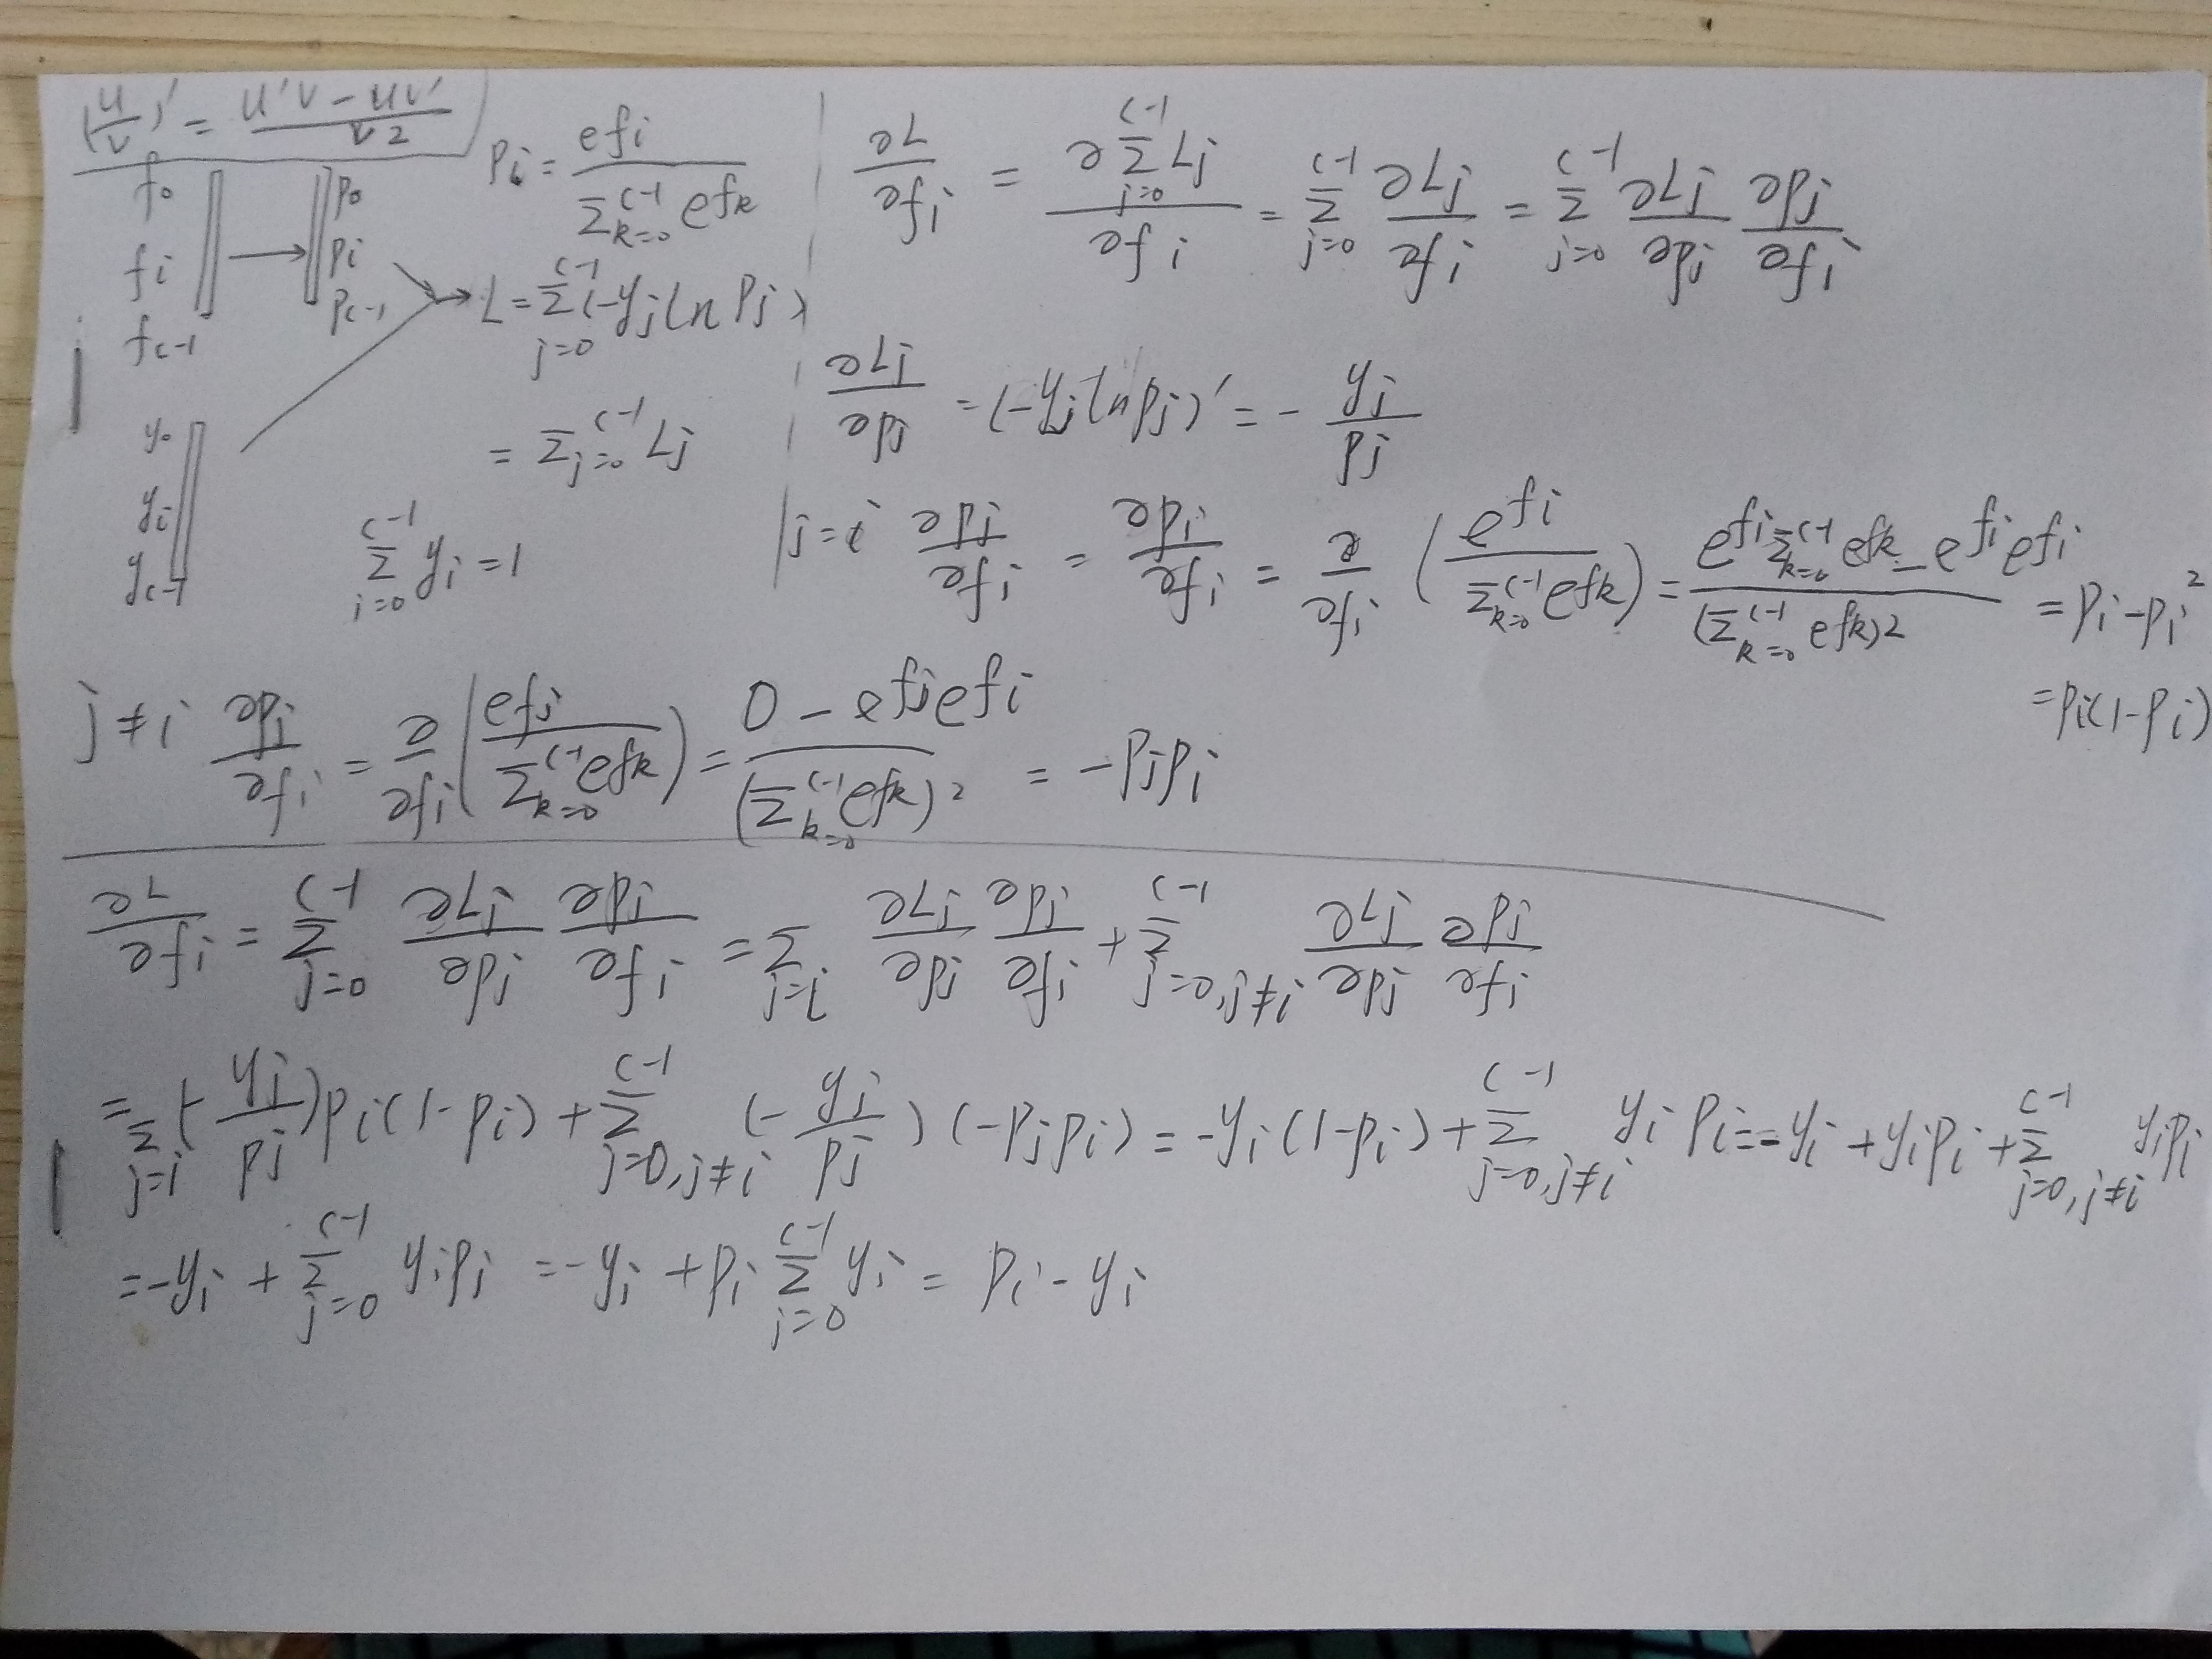 (u/v)' = (u'v - uv')/v²
f₀ fᵢ f_{c-1} → p₀ pᵢ p_{c-1}
pᵢ = e^{fᵢ} / Σ_{k=0}^{c-1} e^{fₖ}
y₀ yᵢ y_{c-1} → L = Σ_{j=0}^{c-1} (-yⱼ ln pⱼ)
= Σ_{j=0}^{c-1} Lⱼ
Σ_{i=0}^{c-1} yᵢ = 1
∂L/∂fᵢ = ∂Σ_{j=0}^{c-1} Lⱼ / ∂fᵢ = Σ_{j=0}^{c-1} ∂Lⱼ/∂fᵢ = Σ_{j=0}^{c-1} ∂Lⱼ/∂pⱼ ∂pⱼ/∂fᵢ
∂Lⱼ/∂pⱼ = (-yⱼ ln pⱼ)' = - yⱼ/pⱼ
j = i ∂pⱼ/∂fᵢ = ∂pᵢ/∂fᵢ = ∂/∂fᵢ (e^{fᵢ} / Σ_{k=0}^{c-1} e^{fₖ}) = (e^{fᵢ} Σ_{k=0}^{c-1} e^{fₖ} - e^{fᵢ} e^{fᵢ}) / (Σ_{k=0}^{c-1} e^{fₖ})² = pᵢ - pᵢ²
= pᵢ(1 - pᵢ)
j ≠ i ∂pⱼ/∂fᵢ = ∂/∂fᵢ (e^{fⱼ} / Σ_{k=0}^{c-1} e^{fₖ}) = (0 - e^{fⱼ} e^{fᵢ}) / (Σ_{k=0}^{c-1} e^{fₖ})² = - pⱼpᵢ
∂L/∂fᵢ = Σ_{j=0}^{c-1} ∂Lⱼ/∂pⱼ ∂pⱼ/∂fᵢ = Σ_{j=i} ∂Lⱼ/∂pⱼ ∂pⱼ/∂fᵢ + Σ_{j=0, j≠i}^{c-1} ∂Lⱼ/∂pⱼ ∂pⱼ/∂fᵢ
= Σ_{j=i} (- yⱼ/pⱼ) pᵢ(1 - pᵢ) + Σ_{j=0, j≠i}^{c-1} (- yⱼ/pⱼ)(- pⱼpᵢ) = -yᵢ(1 - pᵢ) + Σ_{j=0, j≠i}^{c-1} yⱼ pᵢ = -yᵢ + yᵢpᵢ + Σ_{j=0, j≠i}^{c-1} yⱼpᵢ
= -yᵢ + Σ_{j=0}^{c-1} yⱼpᵢ = -yᵢ + pᵢ Σ_{j=0}^{c-1} yⱼ = pᵢ - yᵢ